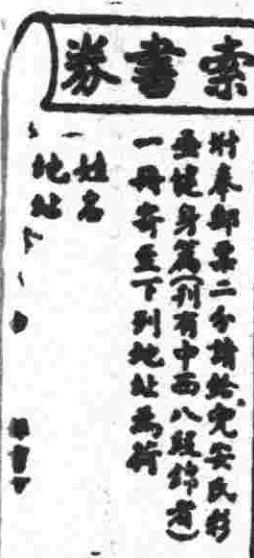 索書券
附奉郵票二分請給兜安氏彩
畫健身篇(刊有中西八段錦者)
一冊寄至下列地址為荷
姓名
地址